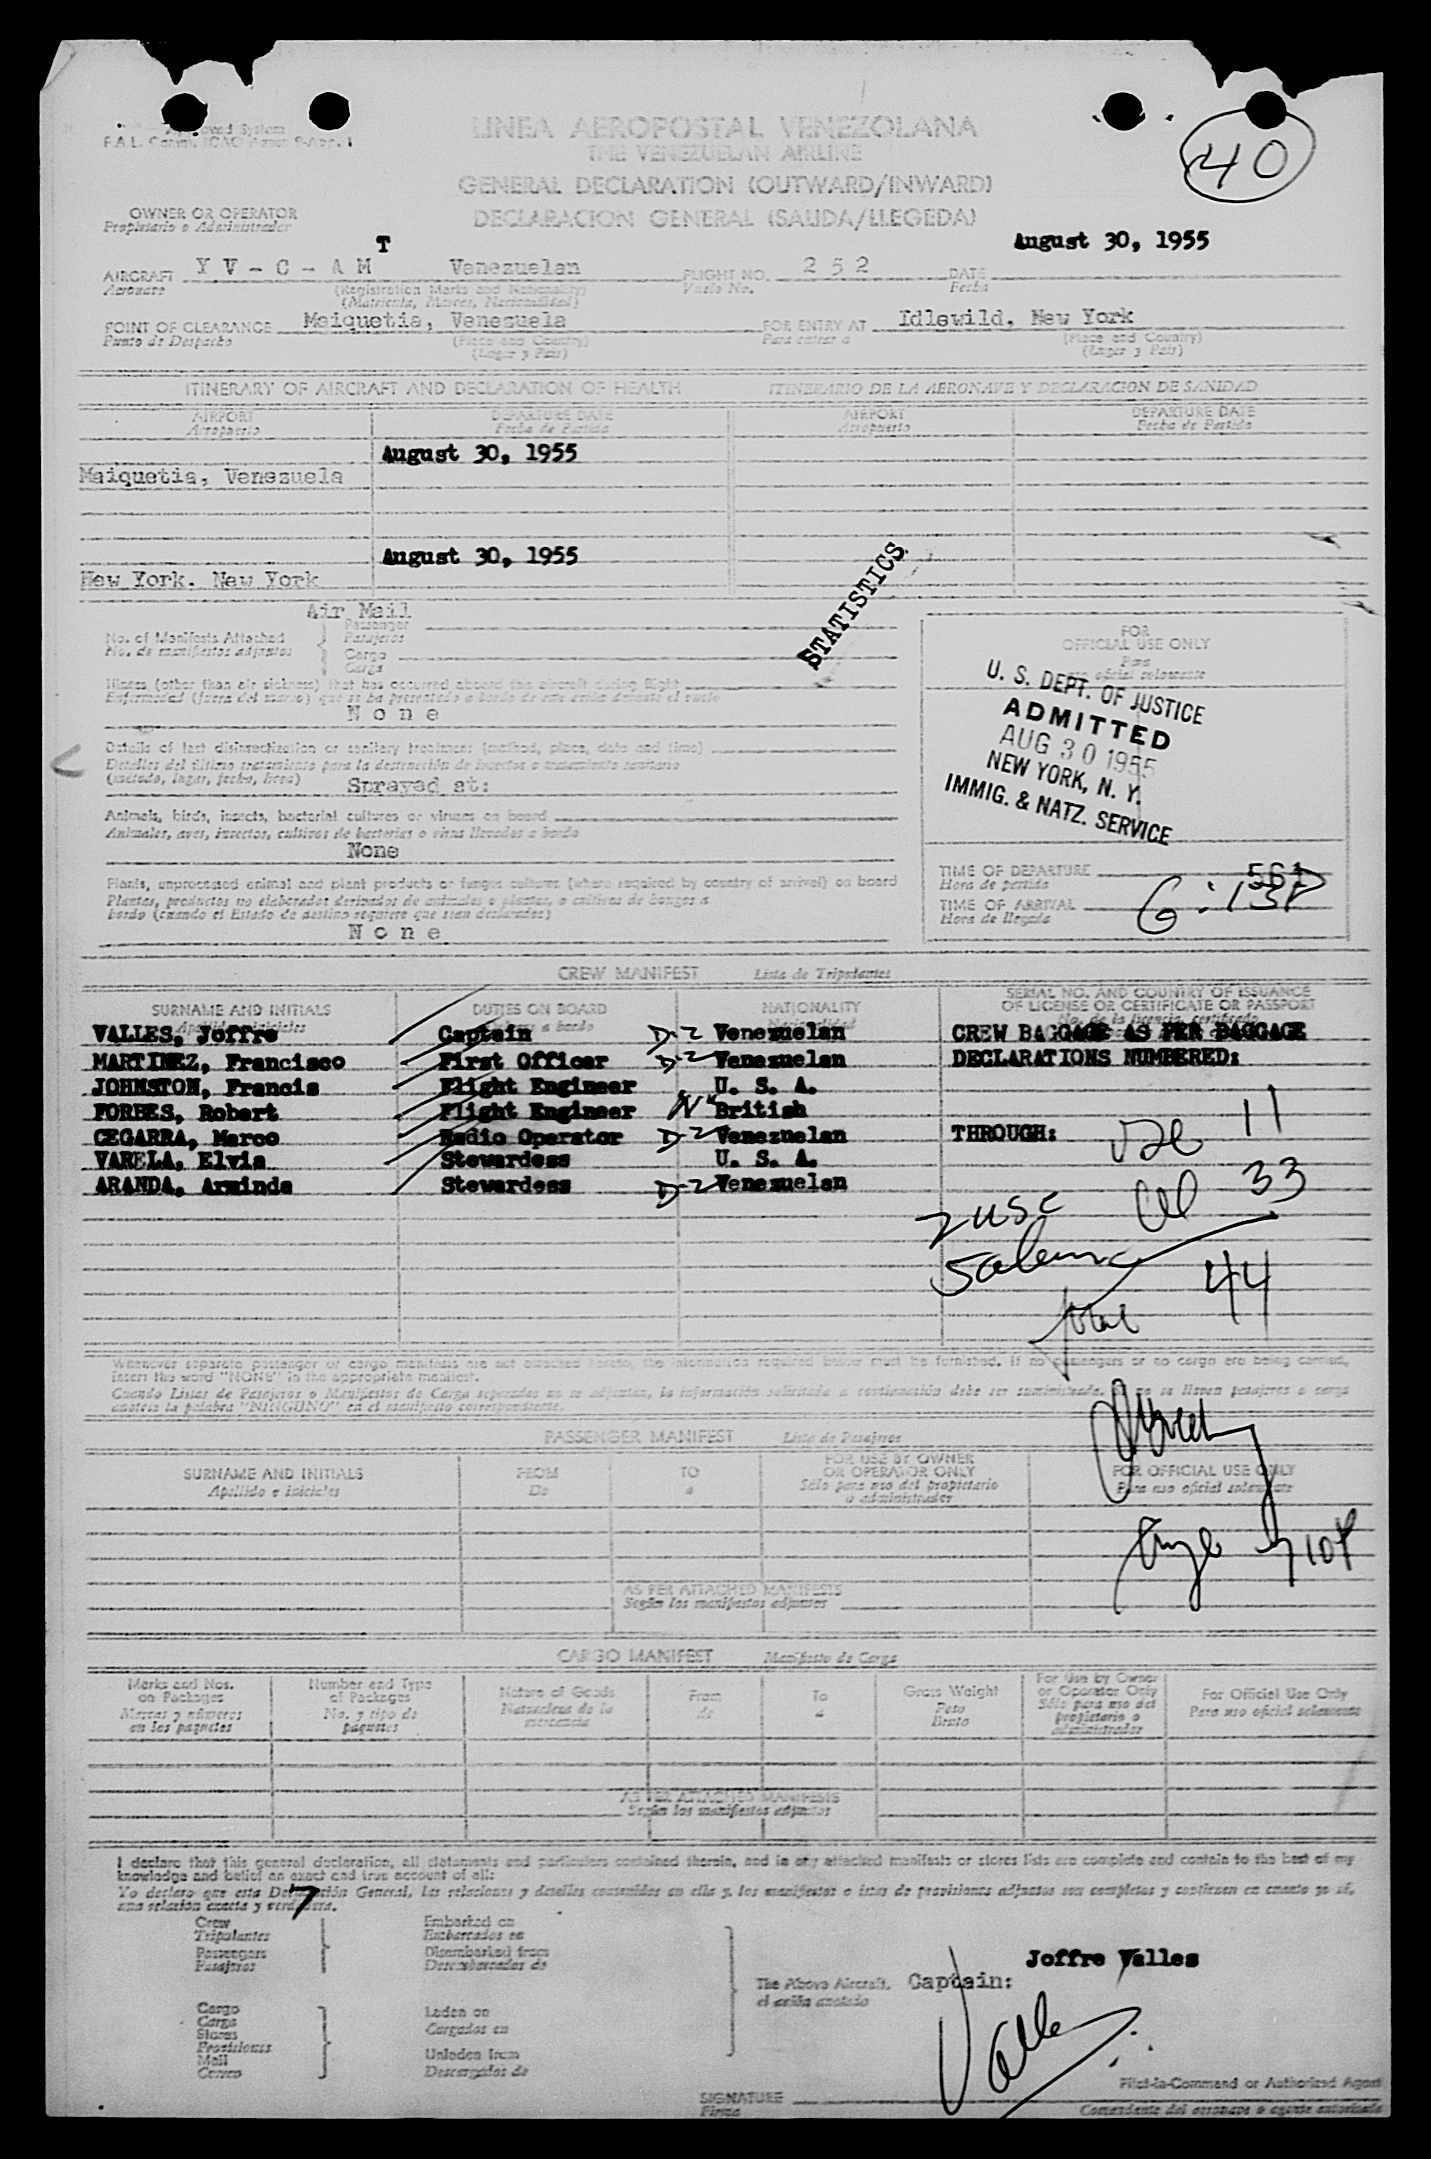 Approved System
F.A.L. Comm. ICAO Annex 9-App. 1
LINEA AEROPOSTAL VENEZOLANA
THE VENEZUELAN AIRLINE
GENERAL DECLARATION (OUTWARD/INWARD)
DECLARACION GENERAL (SALIDA/LLEGEDA)
40
OWNER OR OPERATOR
Propietario o Administrador
August 30, 1955
T
AIRCRAFT Y V - C - A M Venezuelan FLIGHT NO. 2 5 2 DATE
Aeronave (Registration Marks and Nationality) Vuelo No. Fecha
(Matricula, Marcas, Nacionalidad)
POINT OF CLEARANCE Maiquetia, Venezuela FOR ENTRY AT Idlewild, New York
Punto de Despacho (Place and Country) Para entrar a (Place and Country)
(Lugar y Pais) (Lugar y Pais)
ITINERARY OF AIRCRAFT AND DECLARATION OF HEALTH ITINERARIO DE LA AERONAVE Y DECLARACION DE SANIDAD
AIRPORT DEPARTURE DATE AIRPORT DEPARTURE DATE
Aeropuerto Fecha de Partida Aeropuerto Fecha de Partida
August 30, 1955
Maiquetia, Venezuela
August 30, 1955
New York. New York
STATISTICS.
Air Mail
Passenger
No. of Manifests Attached Pasajeros
No. de manifiestos adjuntos Cargo
Carga
Illness (other than air sickness) that has occurred aboard the aircraft during flight
Enfermedad (fuera del mareo) que se ha presentado a bordo de este avión durante el vuelo
N o n e
Details of last disinsectization or sanitary treatment (method, place, date and time)
Detalles del último tratamiento para la destrucción de insectos o tratamiento sanitario
(método, lugar, fecha, hora) Sprayed at:
Animals, birds, insects, bacterial cultures or viruses on board
Animales, aves, insectos, cultivos de bacterias o virus llevados a bordo
None
Plants, unprocessed animal and plant products or fungus cultures (where required by country of arrival) on board
Plantas, productos no elaborados derivados de animales o plantas, o cultivos de hongos a
bordo (cuando el Estado de destino requiere que sean declarados)
N o n e
FOR
OFFICIAL USE ONLY
Para
uso oficial solamente
U. S. DEPT. OF JUSTICE
ADMITTED
AUG 30 1955
NEW YORK, N. Y.
IMMIG. & NATZ. SERVICE
TIME OF DEPARTURE
Hora de partida
TIME OF ARRIVAL 6:13P
Hora de llegada
CREW MANIFEST Lista de Tripulantes
SURNAME AND INITIALS DUTIES ON BOARD NATIONALITY SERIAL NO. AND COUNTRY OF ISSUANCE
OF LICENSE OR CERTIFICATE OR PASSPORT
Apellido e iniciales a bordo No. de la licencia, certificado
VALLES, Joffre Captain D-2 Venezuelan CREW BAGGAGE AS PER BAGGAGE
MARTINEZ, Francisco First Officer D-2 Venezuelan DECLARATIONS NUMBERED:
JOHNSTON, Francis Flight Engineer U. S. A.
FORBES, Robert Flight Engineer N British
CEGARRA, Marco Radio Operator D-2 Venezuelan THROUGH: 11
VARELA, Elvia Stewardess U. S. A.
ARANDA, Arminda Stewardess D-2 Venezuelan 33
2 USC
5 alien
total 44
Whenever separate passenger or cargo manifests are not attached hereto, the information required below must be furnished. If no passengers or no cargo are being carried,
insert the word "NONE" in the appropriate manifest.
Cuando Listas de Pasajeros o Manifiestos de Carga separados no se adjuntan, la información solicitada a continuación debe ser suministrada. Si no se llevan pasajeros o carga
anótese la palabra "NINGUNO" en el manifiesto correspondiente.
PASSENGER MANIFEST Lista de Pasajeros
SURNAME AND INITIALS FROM TO FOR USE BY OWNER
OR OPERATOR ONLY FOR OFFICIAL USE ONLY
Apellido e iniciales De a Sólo para uso del propietario
o administrador Para uso oficial solamente
710P
AS PER ATTACHED MANIFESTS
Según los manifiestos adjuntos
CARGO MANIFEST Manifiesto de Carga
Marks and Nos.
on Packages
Marcas y números
en los paquetes
Number and Type
of Packages
No. y tipo de
paquetes
Nature of Goods
Naturaleza de la
mercancia
From
de
To
a
Gross Weight
Peso
Bruto
For Use by Owner
or Operator Only
Sólo para uso del
propietario o
administrador
For Official Use Only
Para uso oficial solamente
AS PER ATTACHED MANIFESTS
Según los manifiestos adjuntos
I declare that this general declaration, all statements and particulars contained therein, and in any attached manifests or stores lists are complete and contain to the best of my
knowledge and belief an exact and true account of all:
Yo declaro que esta Declaración General, las relaciones y detalles contenidos en ella y, los manifiestos o listas de provisiones adjuntos son completos y contienen en cuanto yo sé,
una relación exacta y verdadera.
7
Crew Embarked on
Tripulantes Embarcados en
Passengers Disembarked from
Pasajeros Desembarcados de
Joffre Valles
The Above Aircraft. Captain:
el avión anotado
Cargo Laden on
Carga Cargados en
Stores
Provisiones
Mail Unladen from
Correo Descargados de
Valles
Pilot-in-Command or Authorized Agent
SIGNATURE
Firma Comandante del aeronave o agente autorizado